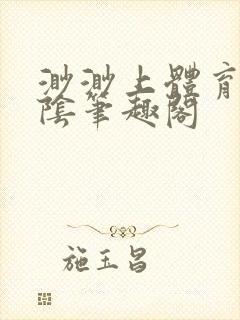 渺渺上體育
陰筆趣閣
施玉昌